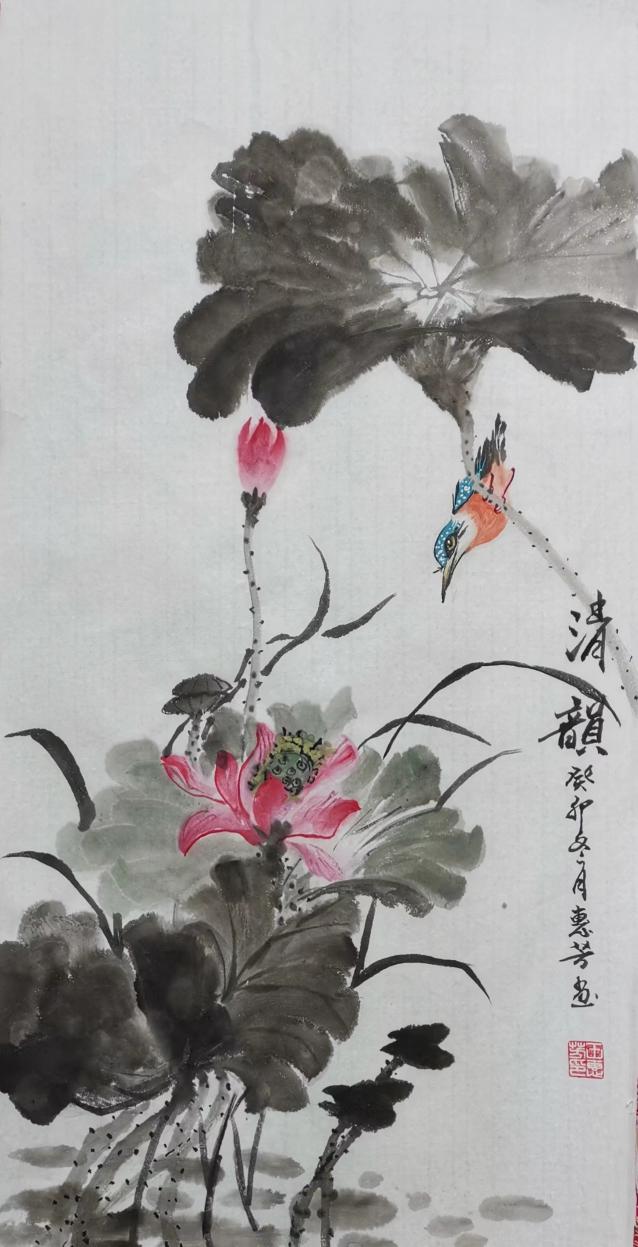 清韻
癸卯冬月惠芳画